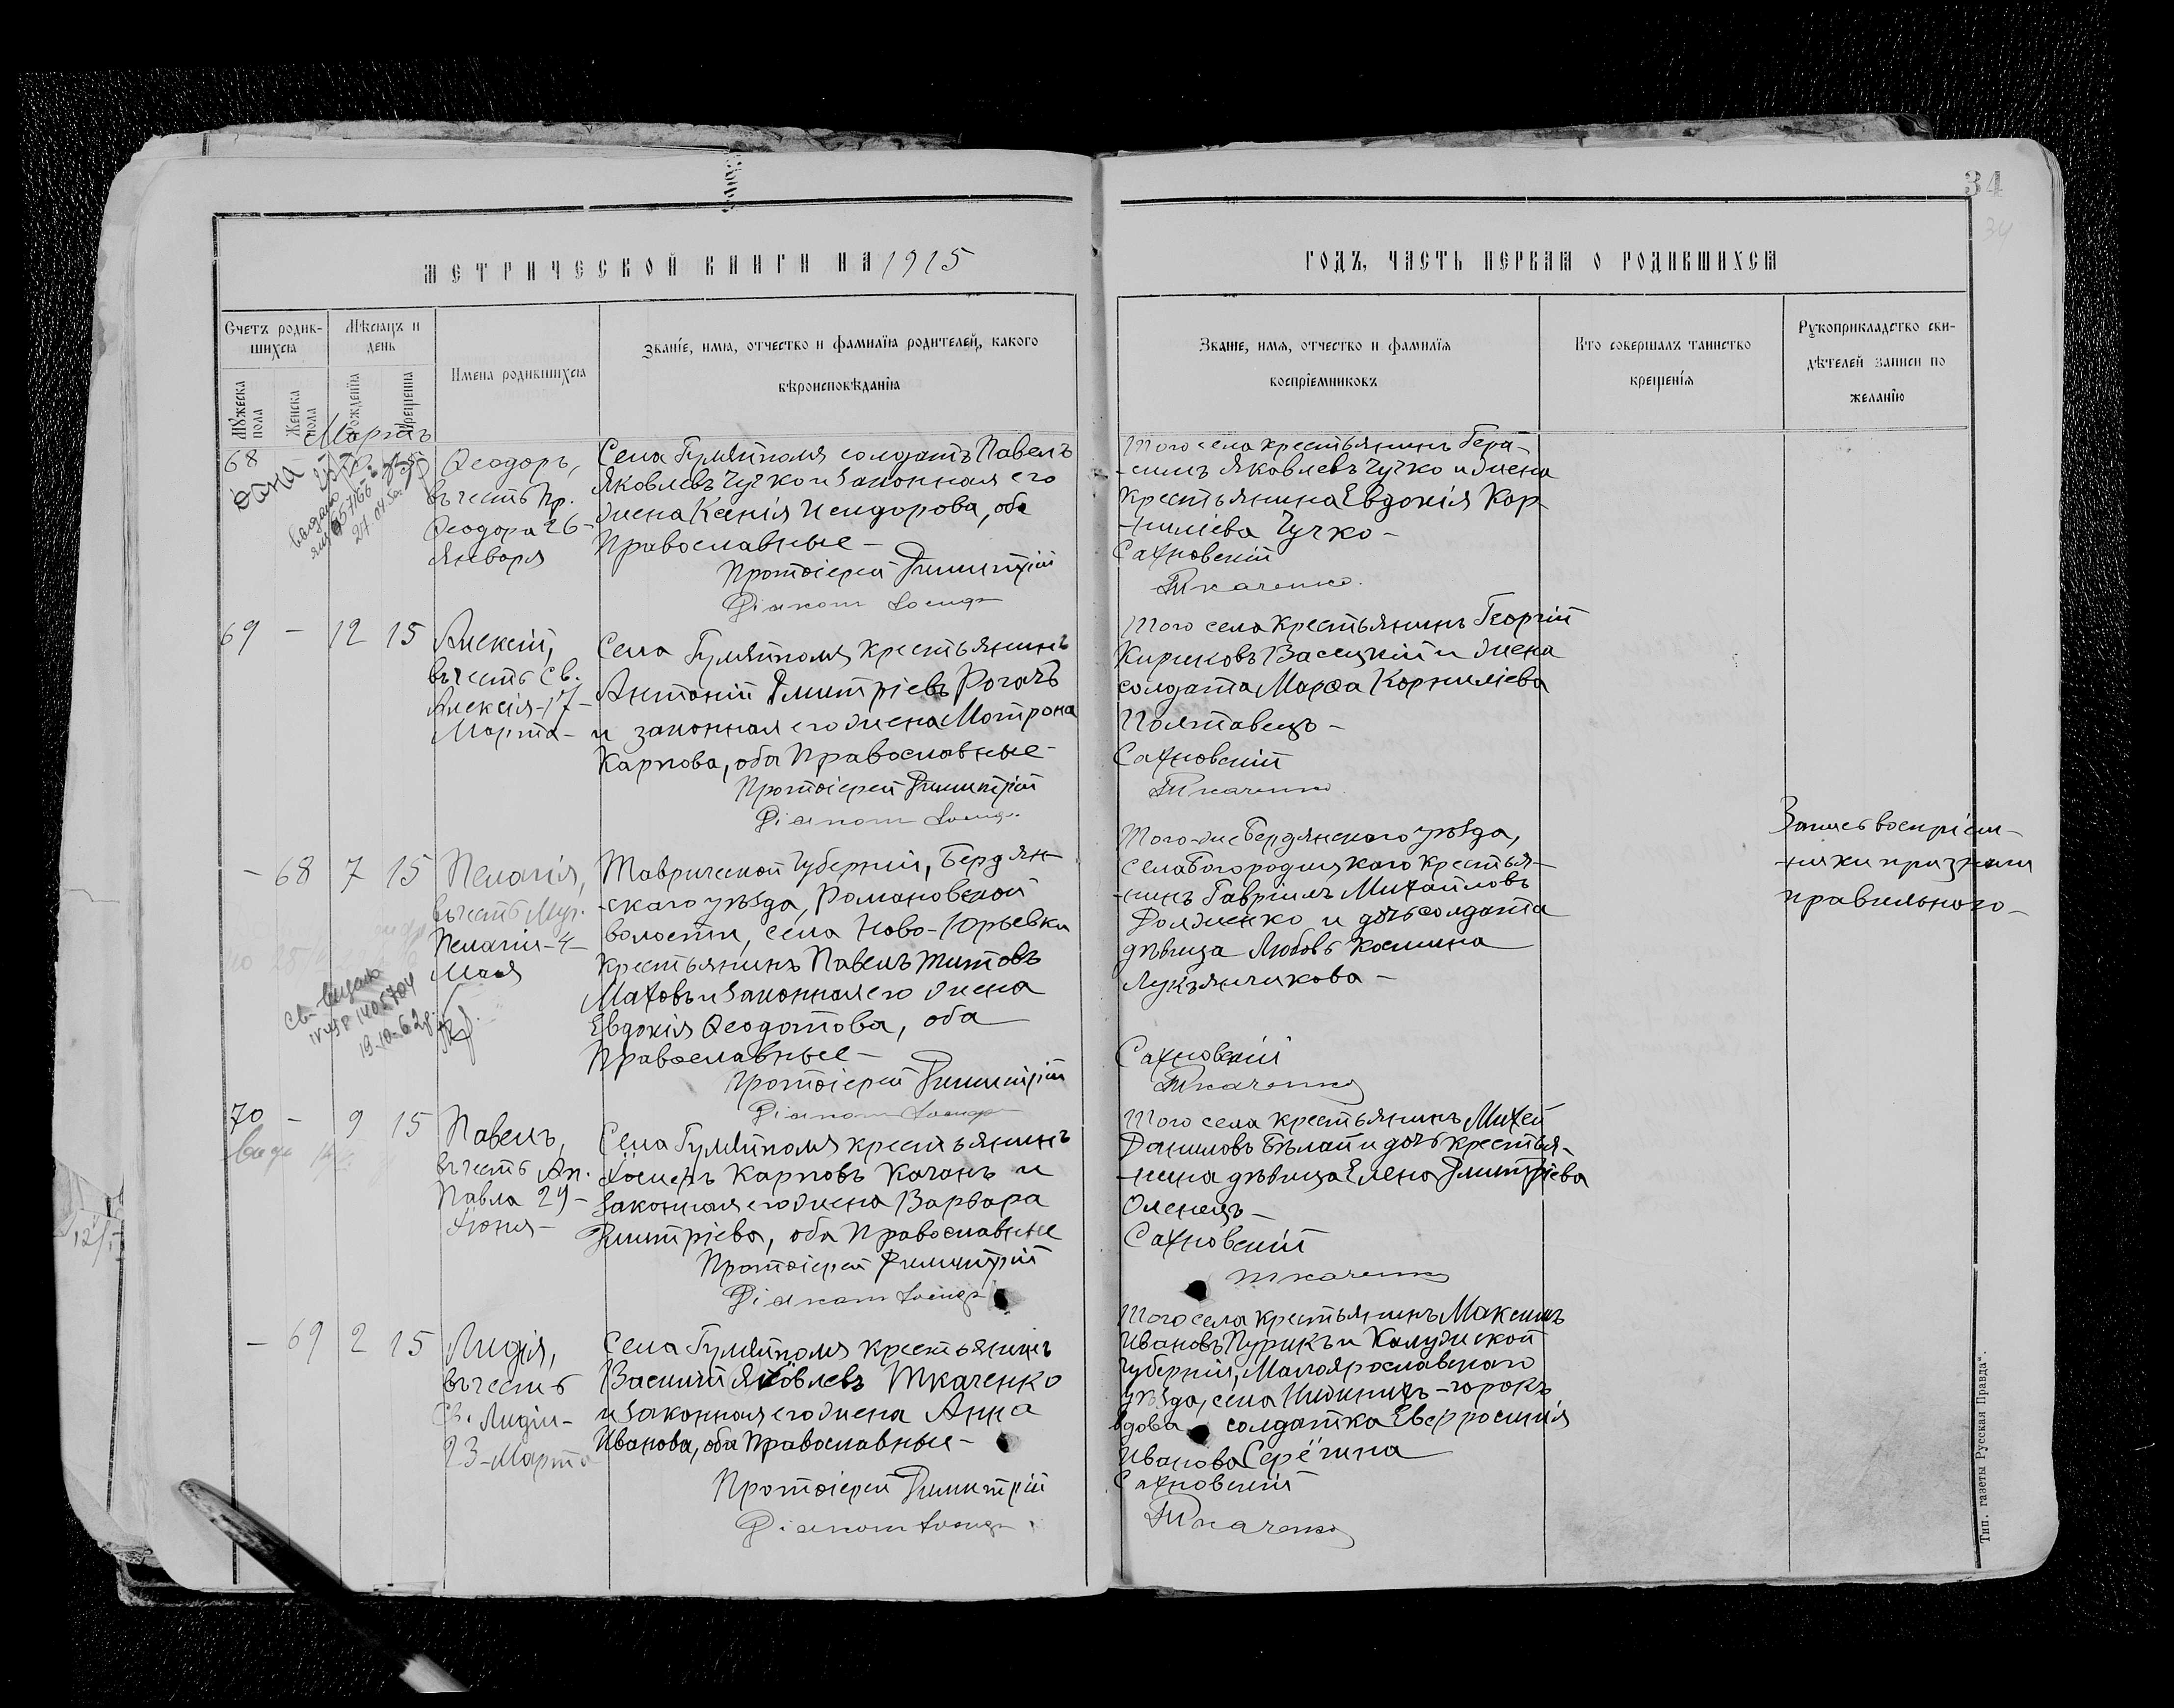 34
34
МЕТРИЧЕСКОЙ КНИГИ НА 1915
ГОДЪ, ЧАСТЬ ПЕРВАЯ О РОДИВШИХСЯ
Счетъ родив-
шихся
Мѣсяцъ и
день
Мужеска
пола
Женска
пола
Рожденія
Крещенія
Имена родившихся
Званіе, имя, отчество и фамилія родителей, какого
вѣроисповѣданія
Званіе, имя, отчество и фамилія
воспріемниковъ
Кто совершалъ таинство
крещенія
Рукоприкладство сви-
дѣтелей записи по
желанію
Мартъ
68
Ѳеодоръ,
въ честь Пр.
Ѳеодора 26-
Января
Села Гуляйполя солдатъ Павелъ
Яковлевъ Чучко и законная его
жена Ксенія Исидорова, оба
Православные-
Протоіерей Димитрій
Діаконъ Іосифъ
Того села крестьянинъ Гера-
-симъ Яковлевъ Чучко и жена
крестьянина Евдокія Кор-
-ниліева Чучко-
Сахновскій
Ткаченко.
69 - 12 15
Алексій,
въ честь Св.
Алексія-17-
Марта-
Села Гуляйполя крестьянинъ
Антоній Дмитріевъ Рогачъ
и законная его жена Мотрона
Карпова, оба Православные-
Протоіерей Димитрій
Діаконъ Іосифъ
Того села крестьянинъ Георгій
Кириковъ Васецкій и жена
солдата Марѳа Корниліева
Полтавецъ-
Сахновскій
Ткаченко
- 68 7 15
Пелагія,
въ честь Муч.
Пелагіи-4-
Мая
Св-
19-10-62г.
Таврической Губерніи, Бердян-
-скаго уѣзда, Романовской
волости, села Ново-Юрьевки
крестьянинъ Павелъ Титовъ
Маховъ и законная его жена
Евдокія Ѳеодотова, оба
Православные-
Протоіерей Димитрій
Діаконъ Іосифъ
Того-же Бердянскаго уѣзда,
села Богородицкаго крестья-
-нинъ Гавріилъ Михайловъ
Долженко и дочь солдата
дѣвица Любовь Космина
Лукьянчикова-
Сахновскій
Ткаченко
Запись воспріем-
-ники признали
правильною-
70 - 9 15
Павелъ,
въ честь Ап.
Павла 29-
Іюня-
Села Гуляйполя крестьянинъ
Іосифъ Карповъ Качанъ и
законная его жена Варвара
Димитріева, оба Православные
Протоіерей Димитрій
Діаконъ Іосифъ
Того села крестьянинъ Михей
Даниловъ Бѣлай и дочь крестья-
-нина дѣвица Елена Дмитріева
Оленецъ-
Сахновскій
Ткаченко
- 69 2 15
Лидія,
въ честь
Св. Лидіи-
23-Марта
Села Гуляйполя крестьянинъ
Василій Яковлевъ Ткаченко
и законная его жена Анна
Иванова, оба Православные-
Протоіерей Димитрій
Діаконъ Іосифъ
Того села крестьянинъ Максимъ
Ивановъ Пурикъ и Калужской
губерніи, Малоярославскаго
уѣзда, села
вдова солдатка Евфросинія
Иванова Серёгина
Сахновскій
Ткаченко
Тип. газеты Русская Правда".